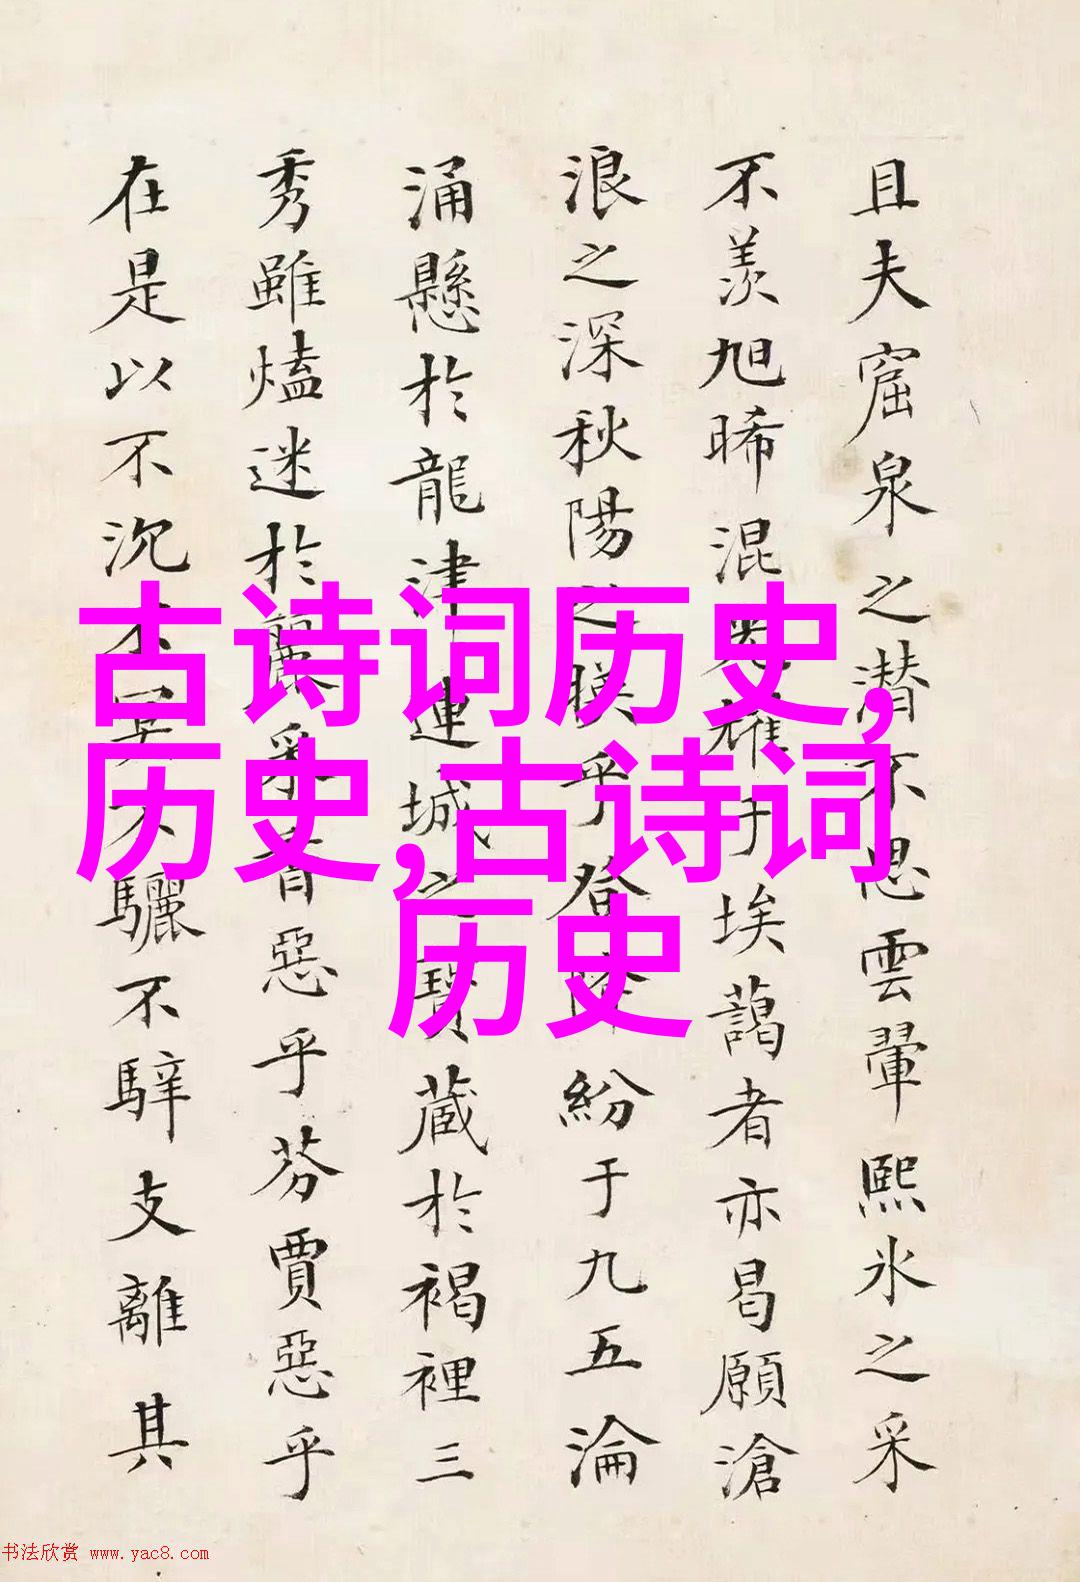 且夫窟泉之潜不思雲翬熙氷之采
不羨旭晞混光耀于埃藹者亦曷願滄
浪之深秋陽之暎乎登降紛于九五淪
涌懸於龍津連城之寶藏於褐裡三
秀雖迷於麗采惡乎芬賈惡乎
在是以不沉不不驪不騂支離其
古诗词历史,
历史,古诗词
历史
书法欣赏 www.yac8.com